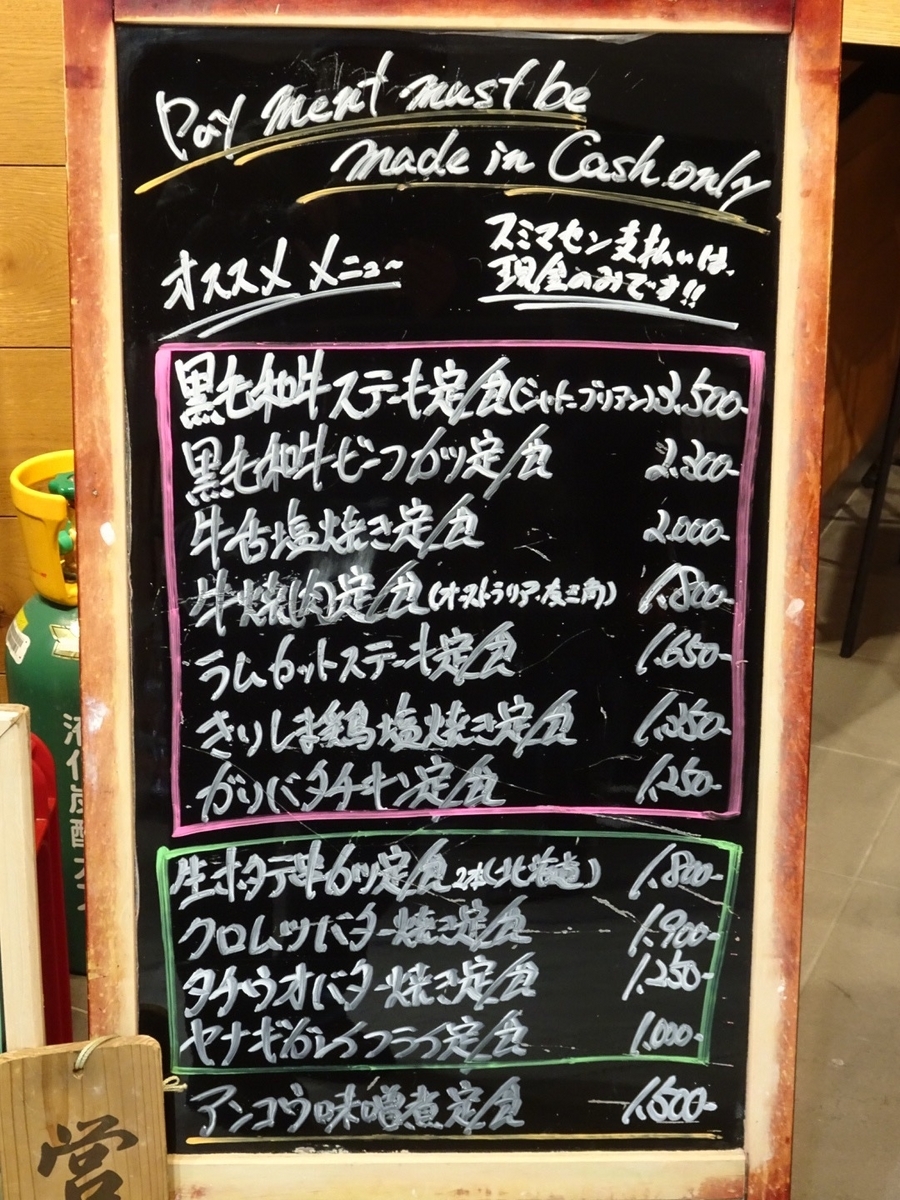 Payment must be
made in Cash only
オススメ メニュー
スミマセン支払いは、
現金のみです!!
黒毛和牛ステーキ定食(シャトーブリアン)3.500-
黒毛和牛ビーフカツ定食 2.300-
牛舌塩焼き定食 2.000-
牛焼肉定食(オーストラリア産三角) 1.800-
ラムカットステーキ定食 1.650-
きりしま鶏塩焼き定食 1.350-
ガリバタチキン定食 1.250-
生ホタテ串カツ定食2本(北海道) 1.800-
クロムツバター焼き定食 1.900-
タチウオバター焼き定食 1.250-
ヤナギカレイフライ定食 1.000-
アンコウ味噌煮定食 1.500-
営